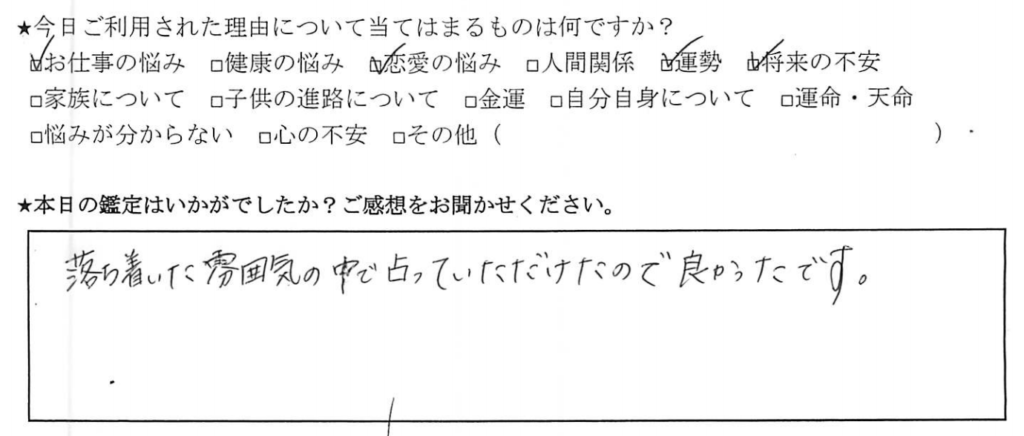 ★今日ご利用された理由について当てはまるものは何ですか?
☑お仕事の悩み □健康の悩み ☑恋愛の悩み □人間関係 ☑運勢 ☑将来の不安
□家族について □子供の進路について □金運 □自分自身について □運命・天命
□悩みが分からない □心の不安 □その他（ ）
★本日の鑑定はいかがでしたか?ご感想をお聞かせください。
落ち着いた雰囲気の中で占っていただけたので良かったです。